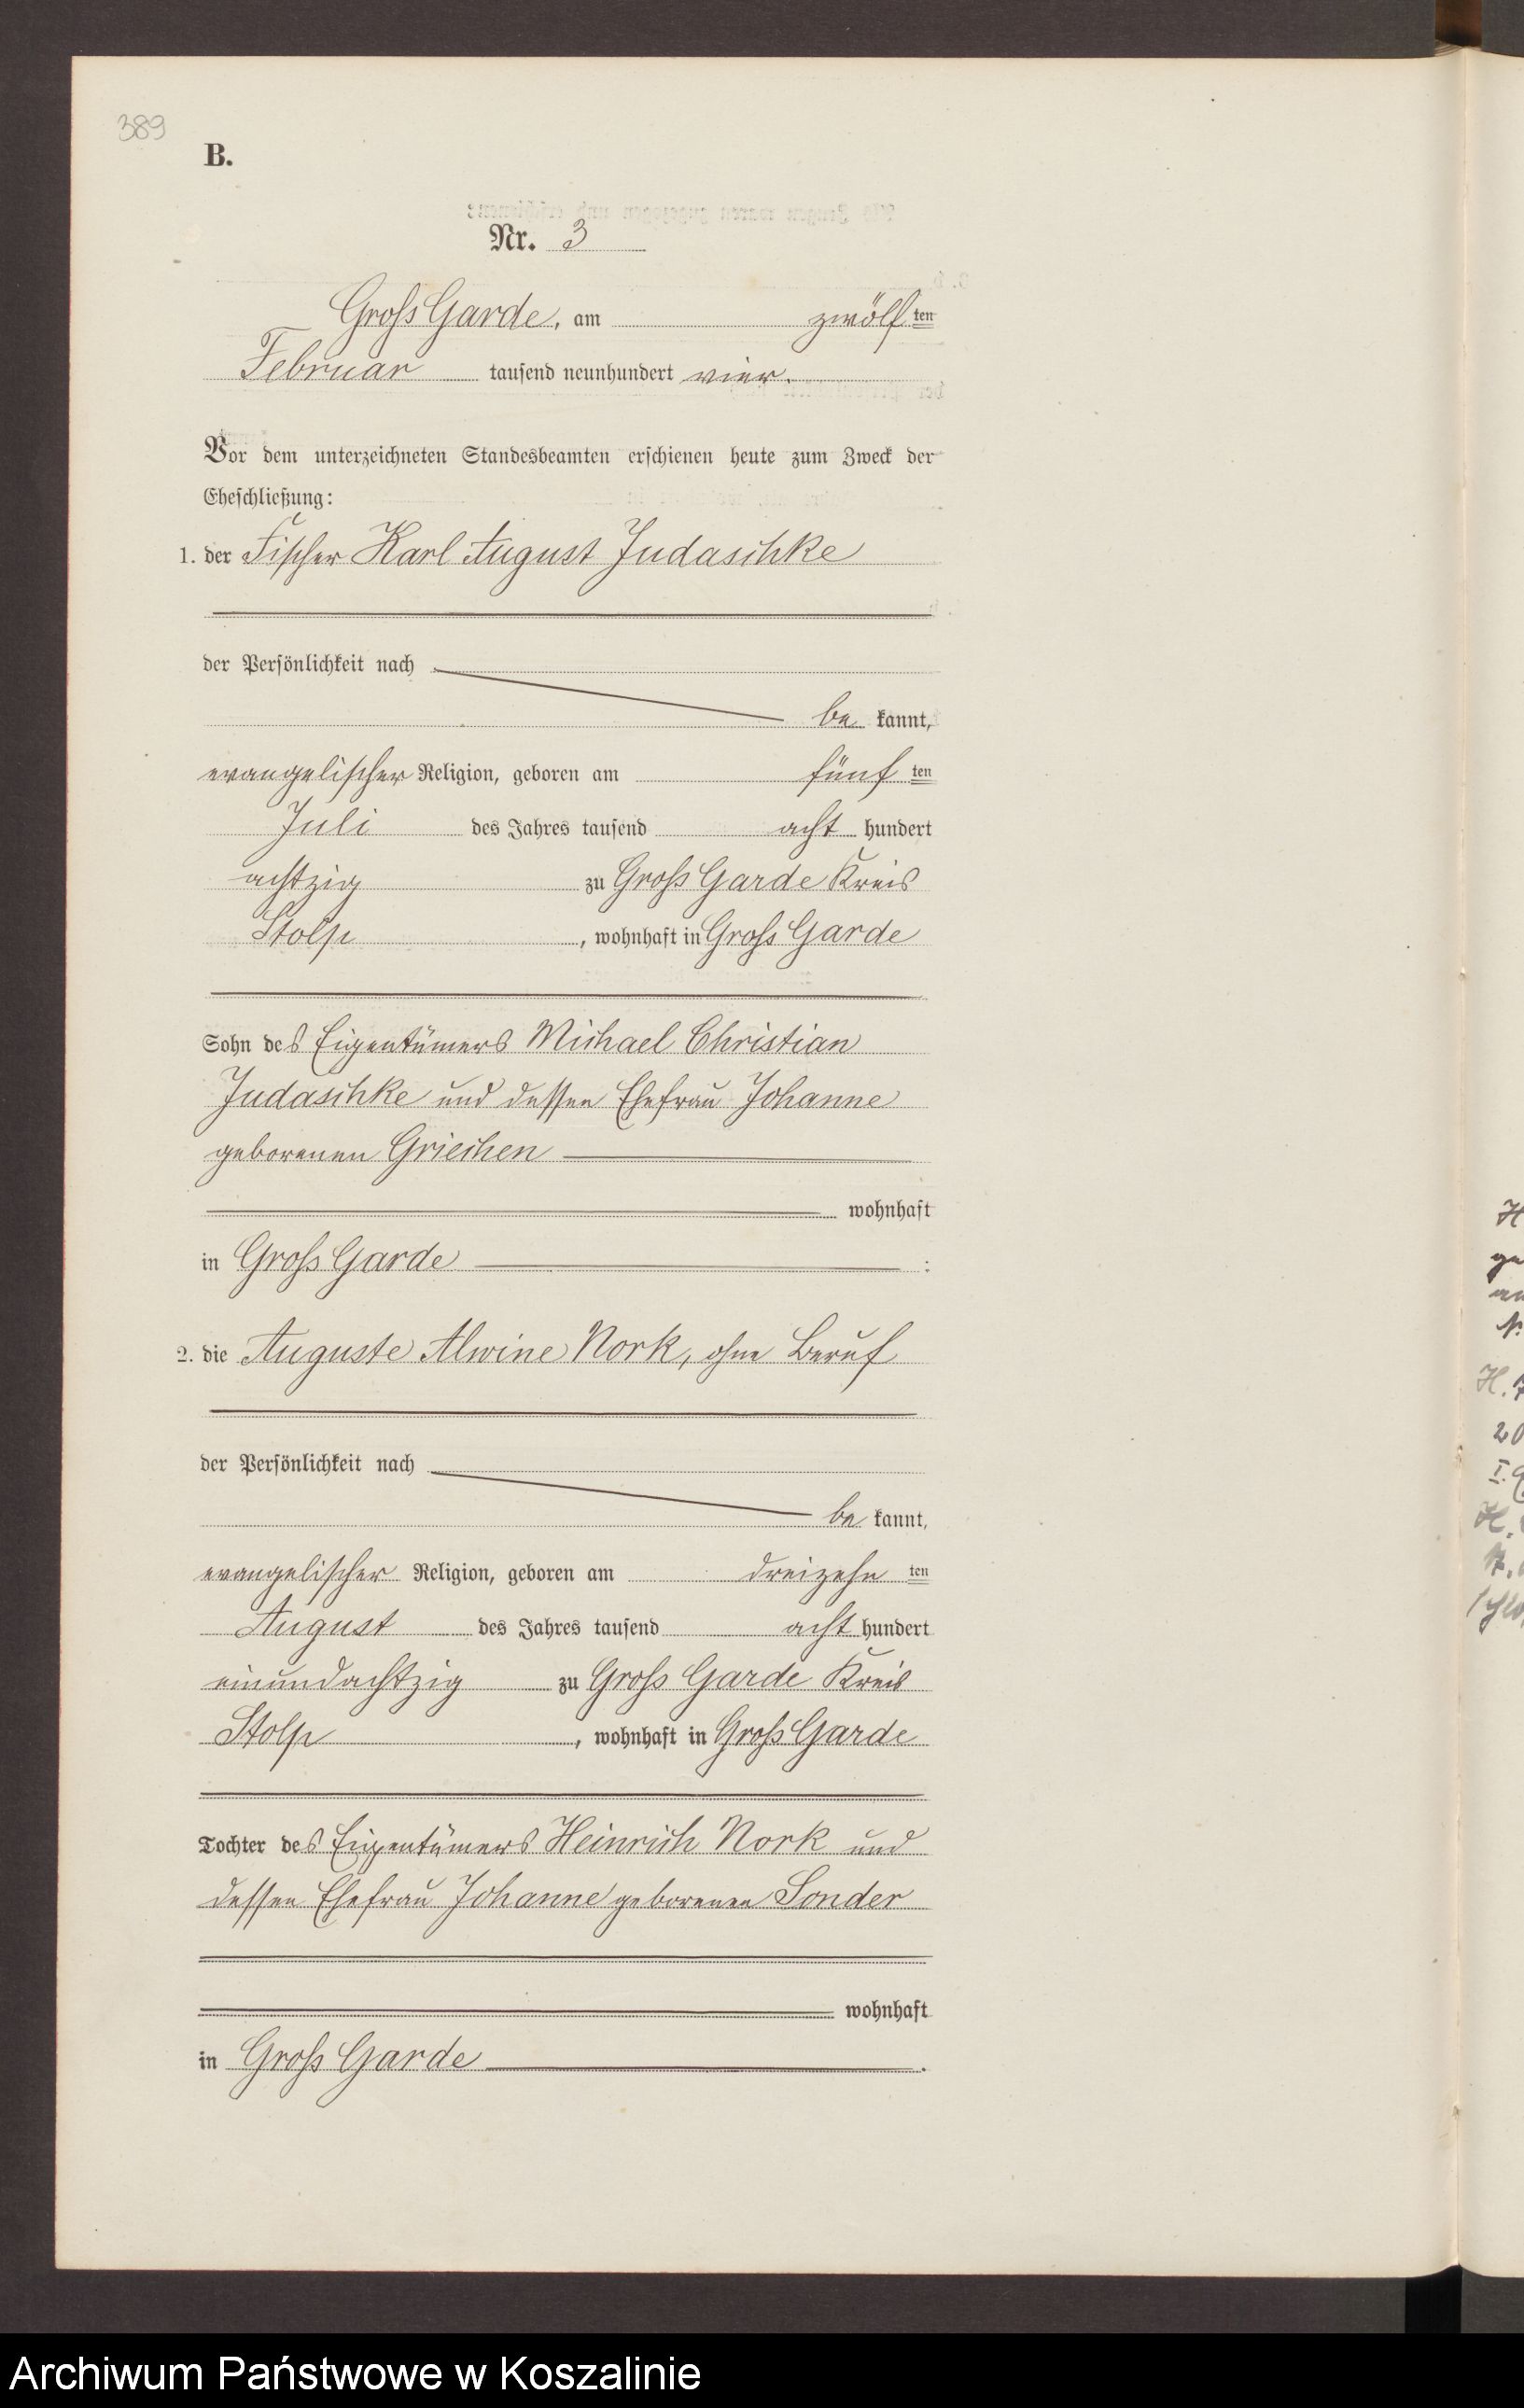 389
B.
Nr. 3
Gross Garde, am zwölf ten
Februar tausend neunhundert vier.
Vor dem unterzeichneten Standesbeamten erschienen heute zum Zweck der
Eheschließung:
1. der Fischer Karl August Judaschke
der Persönlichkeit nach
be kannt,
evangelischer Religion, geboren am fünf ten
Juli des Jahres tausend acht hundert
achtzig zu Gross Garde Kreis
Stolp, wohnhaft in Gross Garde
Sohn des Eigentümers Michael Christian
Judaschke und dessen Ehefrau Johanne
geborenen Griechen
wohnhaft
in Gross Garde :
2. die Auguste Alwine Nork, ohne Beruf
der Persönlichkeit nach
be kannt,
evangelischer Religion, geboren am dreizehn ten
August des Jahres tausend acht hundert
einundachtzig zu Gross Garde Kreis
Stolp, wohnhaft in Gross Garde
Tochter des Eigentümers Heinrich Nork und
dessen Ehefrau Johanne geborenen Sonder
wohnhaft
in Gross Garde .
Archiwum Państwowe w Koszalinie